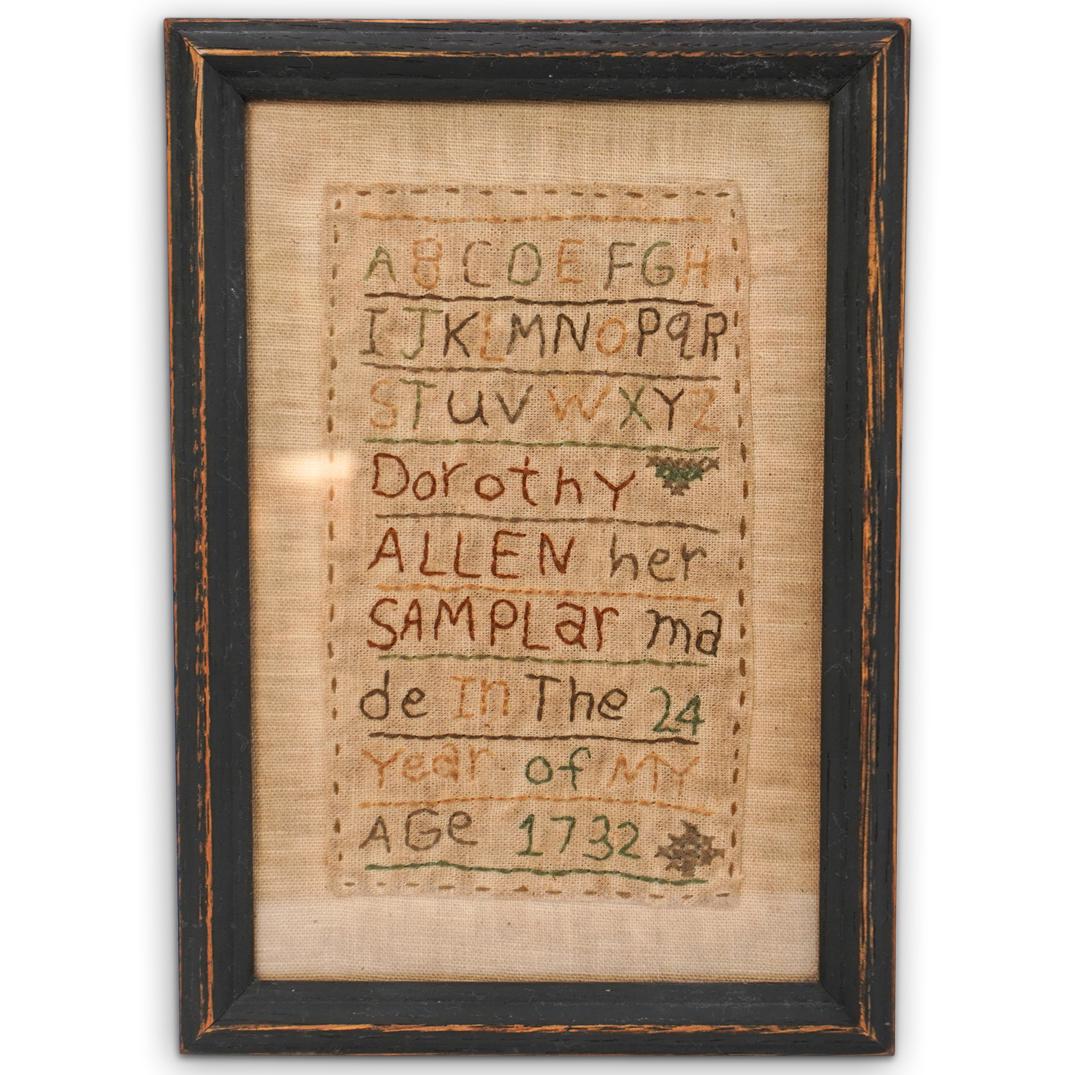 A B C D E F G H
I J K L M N O P q R
S T U V W X Y Z
Dorothy
ALLEN her
SAMPLar ma
de In The 24
Year of MY
AGe 1732